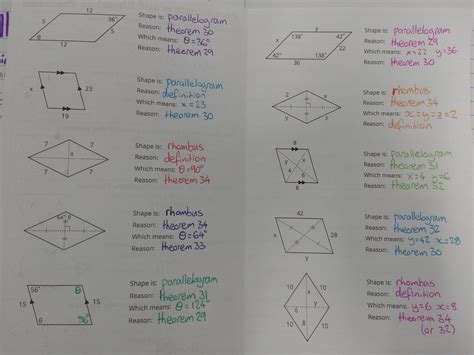 12
5
36°
θ
5
12
Shape is: parallelogram
Reason: theorem 29
Which means: θ=36°
Reason: theorem 30
x
23
19
Shape is: parallelogram
Reason: definition
Which means: x = 23
Reason: theorem 30
7
7
7
7
θ
Shape is: rhombus
Reason: definition
Which means: θ=90°
Reason: theorem 34
64° θ
Shape is: rhombus
Reason: theorem 34
Which means: θ=64°
Reason: theorem 33
56°
θ
15
15
θ
56°
Shape is: parallelogram
Reason: theorem 31
Which means: θ = 124°
Reason: theorem 29
36
138°
y
x
22
42°
138°
42°
36
Shape is: parallelogram
Reason: theorem 29
Which means: x = 22 y = 36
Reason: theorem 30
2
x
y
z
Shape is: rhombus
Reason: theorem 34
Which means: x = y = z = 2
Reason: definition
8
y
4
6
x
8
Shape is: parallelogram
Reason: theorem 31
Which means: x=4 y=6
Reason: theorem 32
42
x
28
y
Shape is: parallelogram
Reason: theorem 32
Which means: y=42 x=28
Reason: theorem 30
10
x
y
10
6
10
8
10
Shape is: rhombus
Reason: definition
Which means: y=6 x=8
Reason: theorem 34
(or 32)